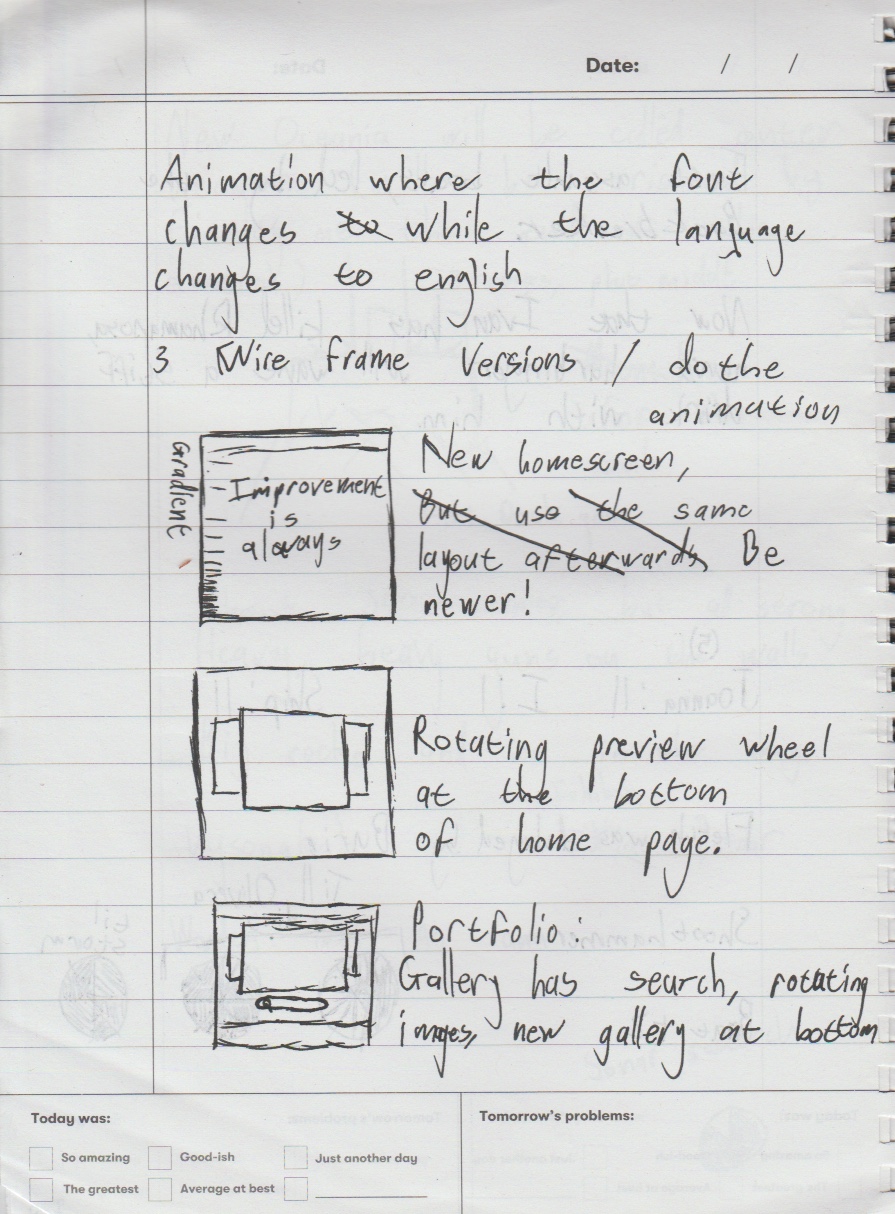 Date: / /
Animation where the font
changes to while the language
changes to english
3 Wire frame Versions / do the
animation
Gradient
Improvement
is
always
New homescreen,
But use the same
layout afterwards Be
newer!
Rotating preview wheel
at the bottom
of home page.
Portfolio:
Gallery has search, rotating
images, new gallery at bottom
Today was:
So amazing
Good-ish
Just another day
The greatest
Average at best
Tomorrow's problems: